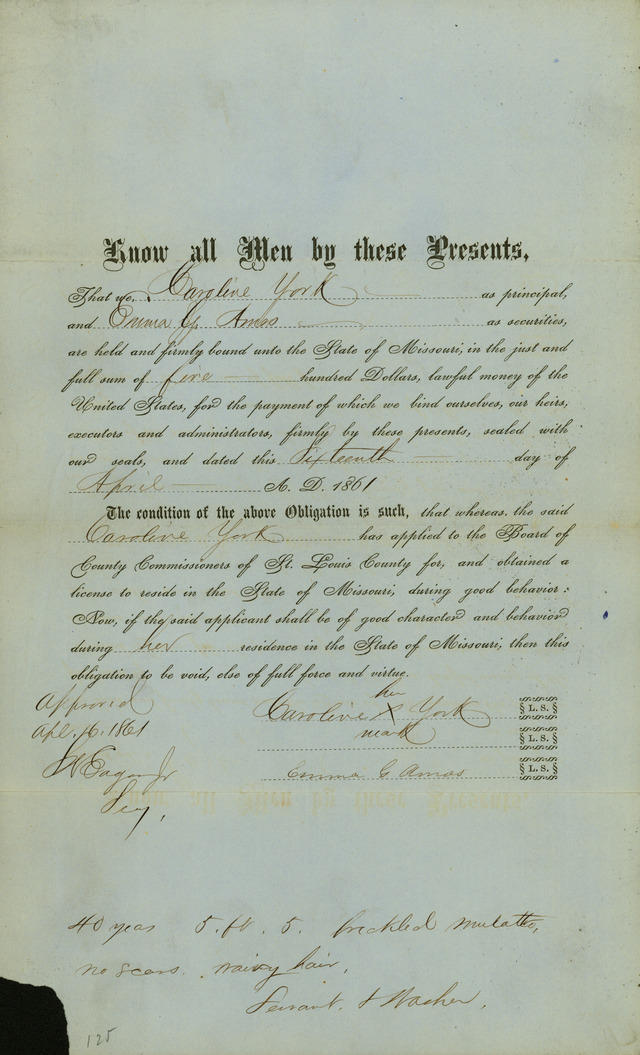 Know all Men by these Presents,
That we, Caroline York as principal,
and Emma G. Amos as securities,
are held and firmly bound unto the State of Missouri, in the just and
full sum of five hundred Dollars, lawful money of the
United States, for the payment of which we bind ourselves, our heirs,
executors and administrators, firmly by these presents, sealed with
our seals, and dated this Sixteenth day of
April A. D. 1861
The condition of the above Obligation is such, that whereas, the said
Caroline York has applied to the Board of
County Commissioners of St. Louis County for, and obtained a
license to reside in the State of Missouri, during good behavior:
Now, if the said applicant shall be of good character and behavior
during her residence in the State of Missouri, then this
obligation to be void, else of full force and virtue.
Approved
Apl. 16. 1861
her
Caroline X York L. S.
mark
L. S.
Emma G Amos L. S.
Jr
Secy,
40 years 5. ft. 5. freckled mulatto,
no scars. wavy hair,
Servant. & Washer.
125